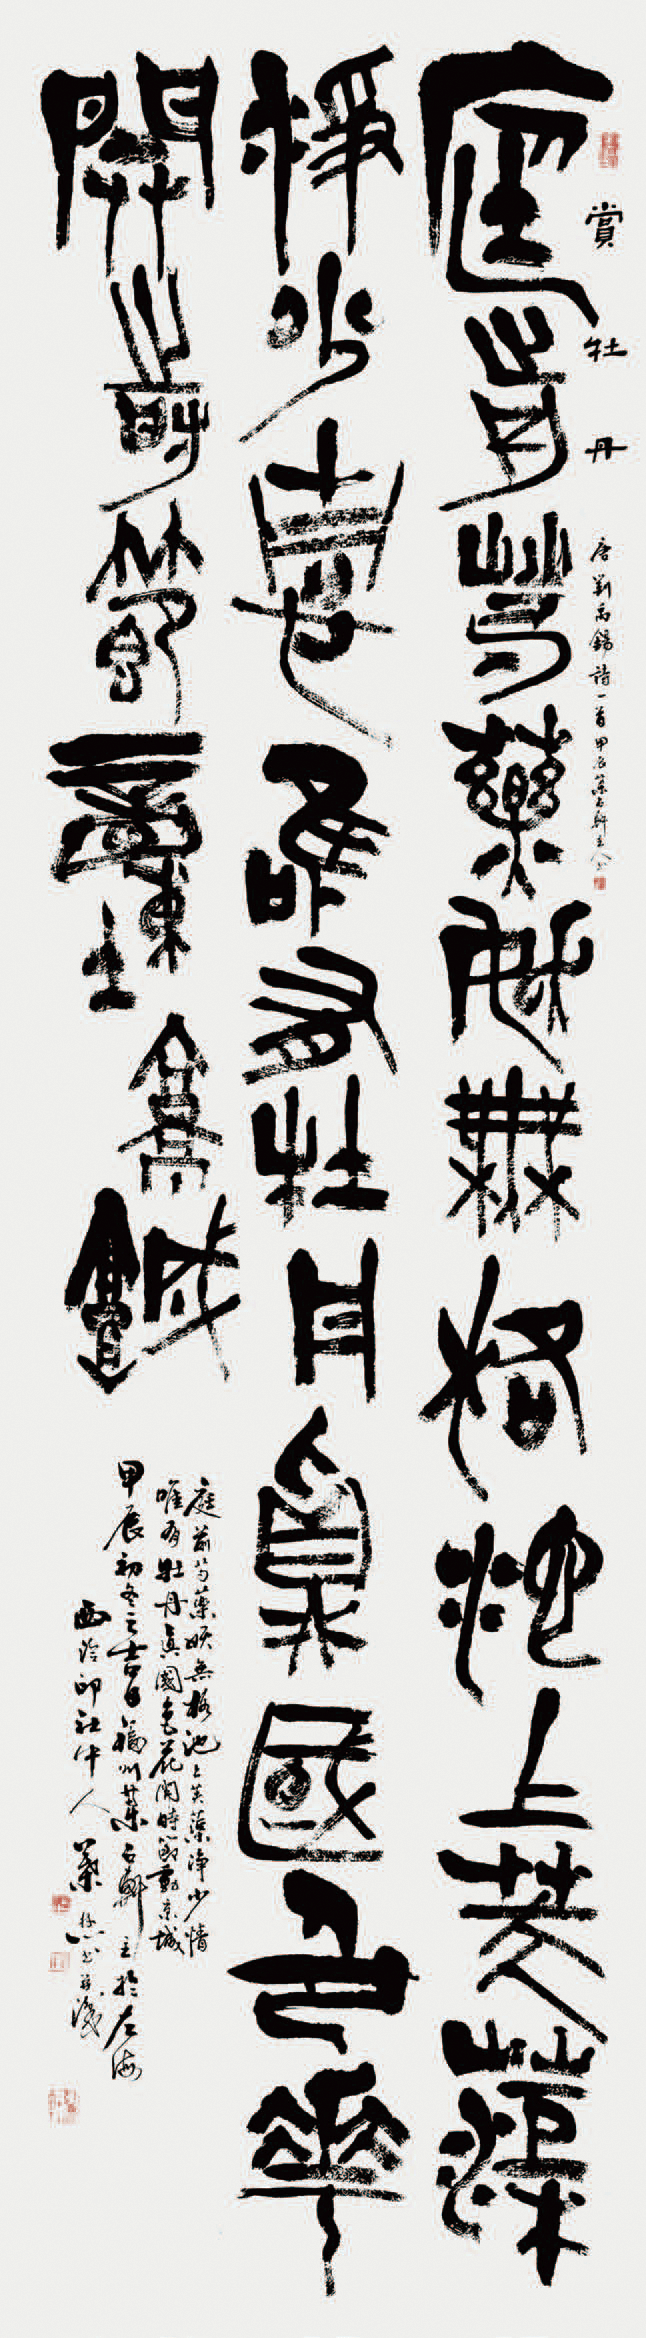 賞牡丹
唐劉禹錫詩一首甲辰軒主人
庭前芍藥妖無格池上芙蕖
淨少情唯有牡丹真國色華
開時節動京城
庭前芍藥妖無格池上芙蕖淨少情
唯有牡丹真國色花開時節動京城
甲辰初冬之吉日福州軒主於左海
西泠印社中人葉書并識